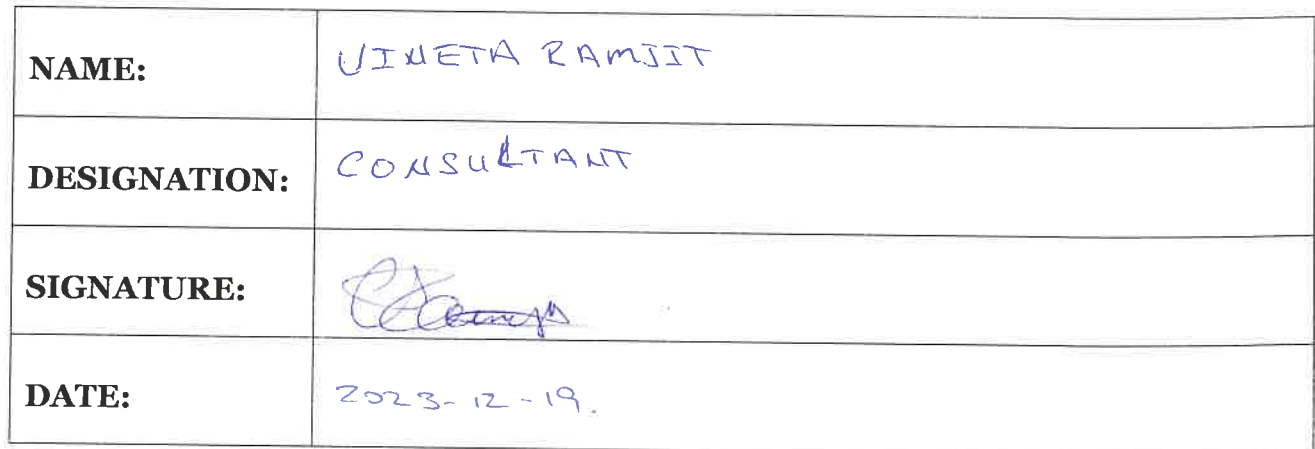 NAME: VINETA RAMJIT
DESIGNATION: CONSULTANT
SIGNATURE:
DATE: 2023-12-19.